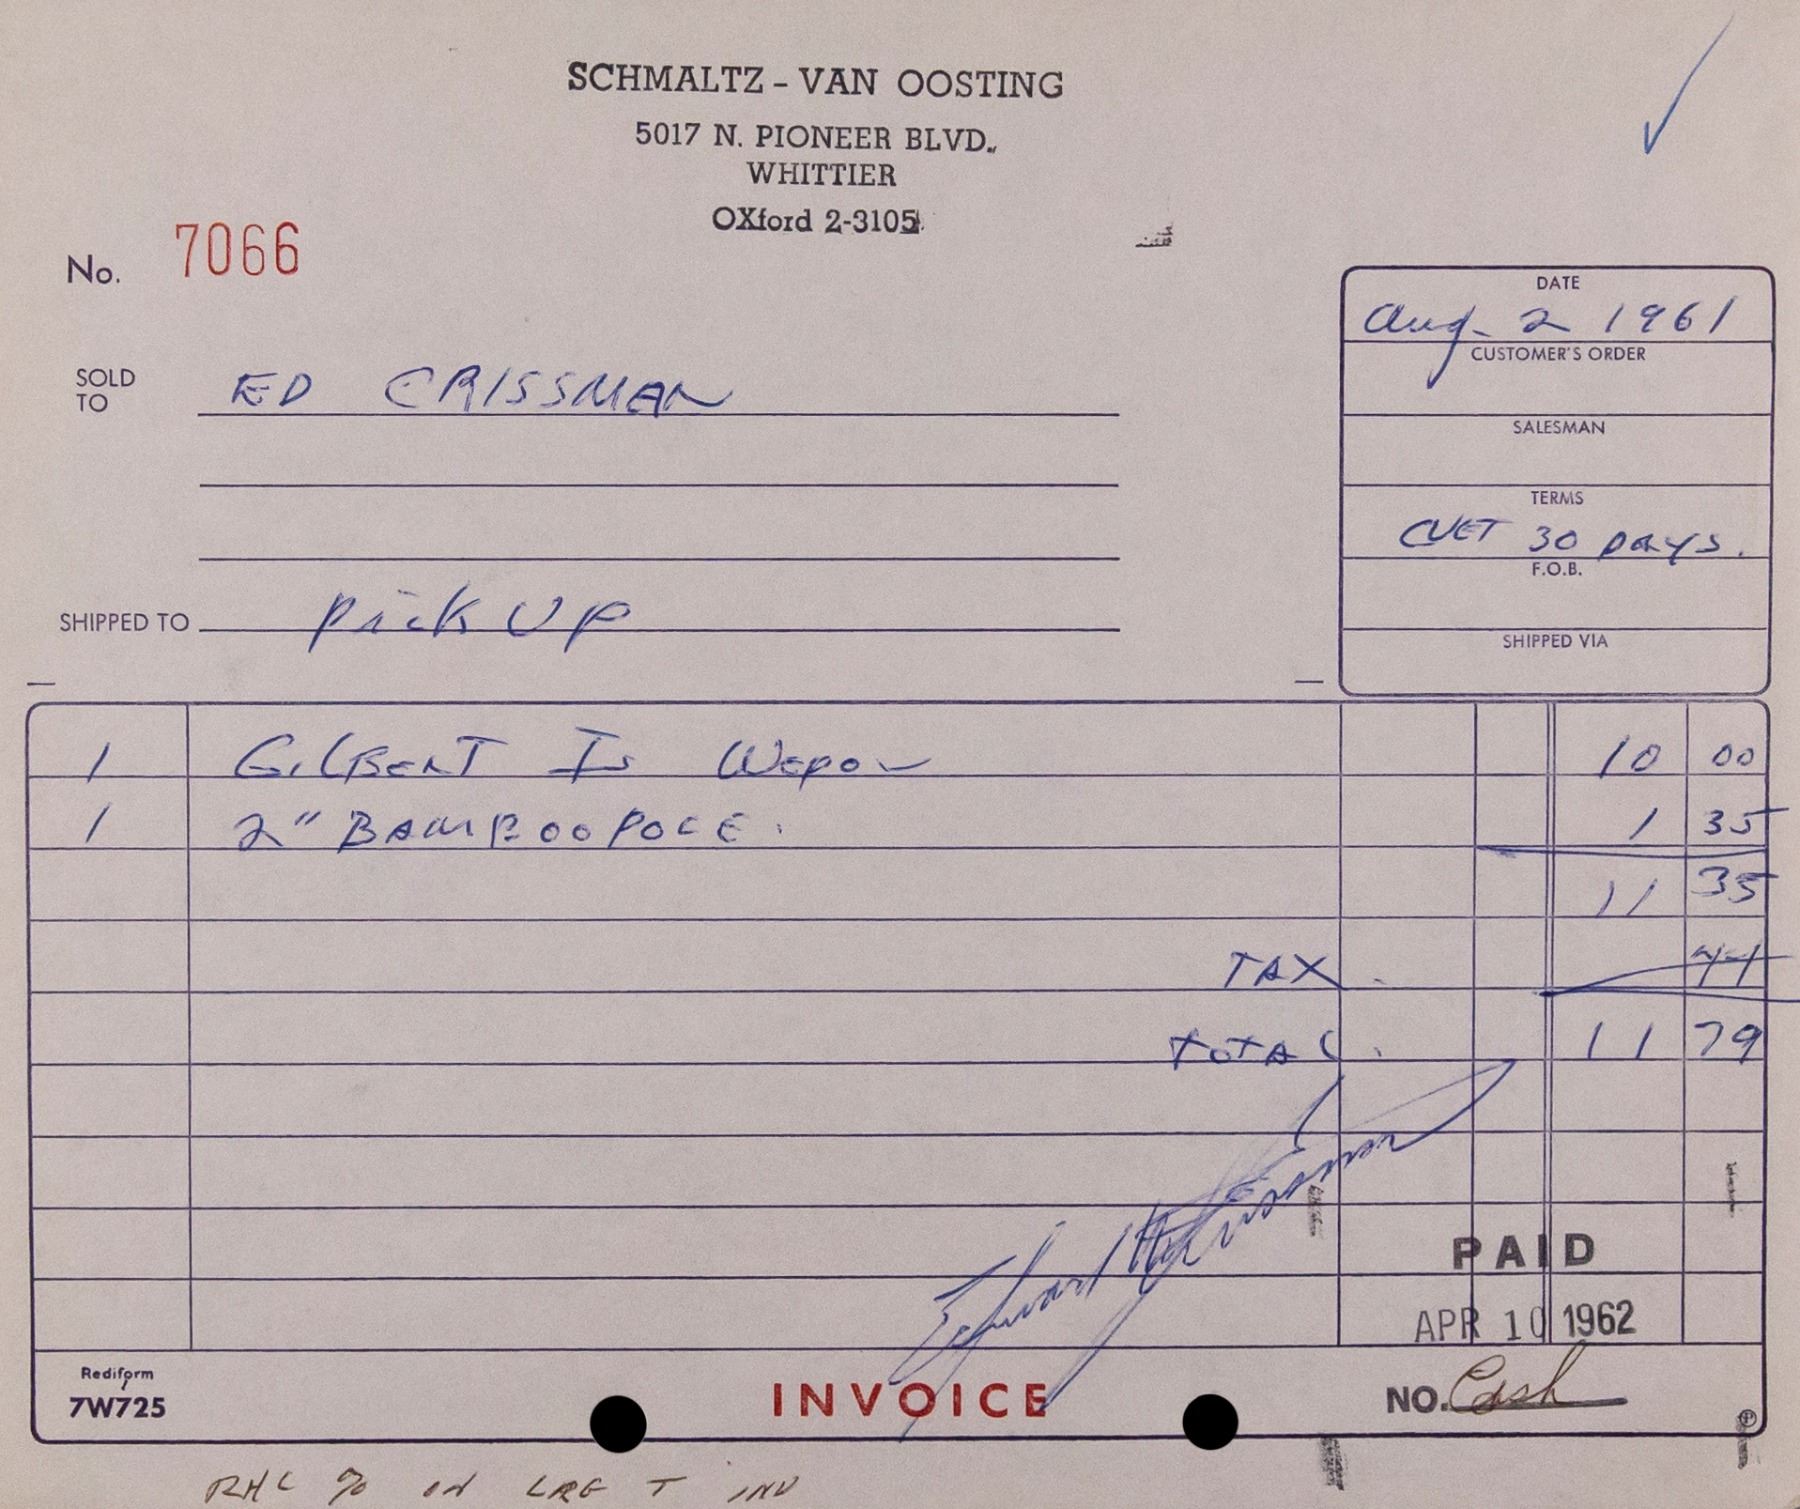 SCHMALTZ - VAN OOSTING
5017 N. PIONEER BLVD.
WHITTIER
OXford 2-3105
No. 7066
DATE
Aug. 2 1961
CUSTOMER'S ORDER
SALESMAN
TERMS
NET 30 DAYS.
F.O.B.
SHIPPED VIA
SOLD TO ED CRISSMAN
SHIPPED TO Pick UP
1 GilBerT Is Wepon 10 00
1 2" BAMBOO POLE. 1 35
11 35
TAX. 44
TOTAL. 11 79
Edward Crissman
PAID
APR 10 1962
Rediform
7W725
INVOICE
NO. Cash
RHC % ON LRG T INV